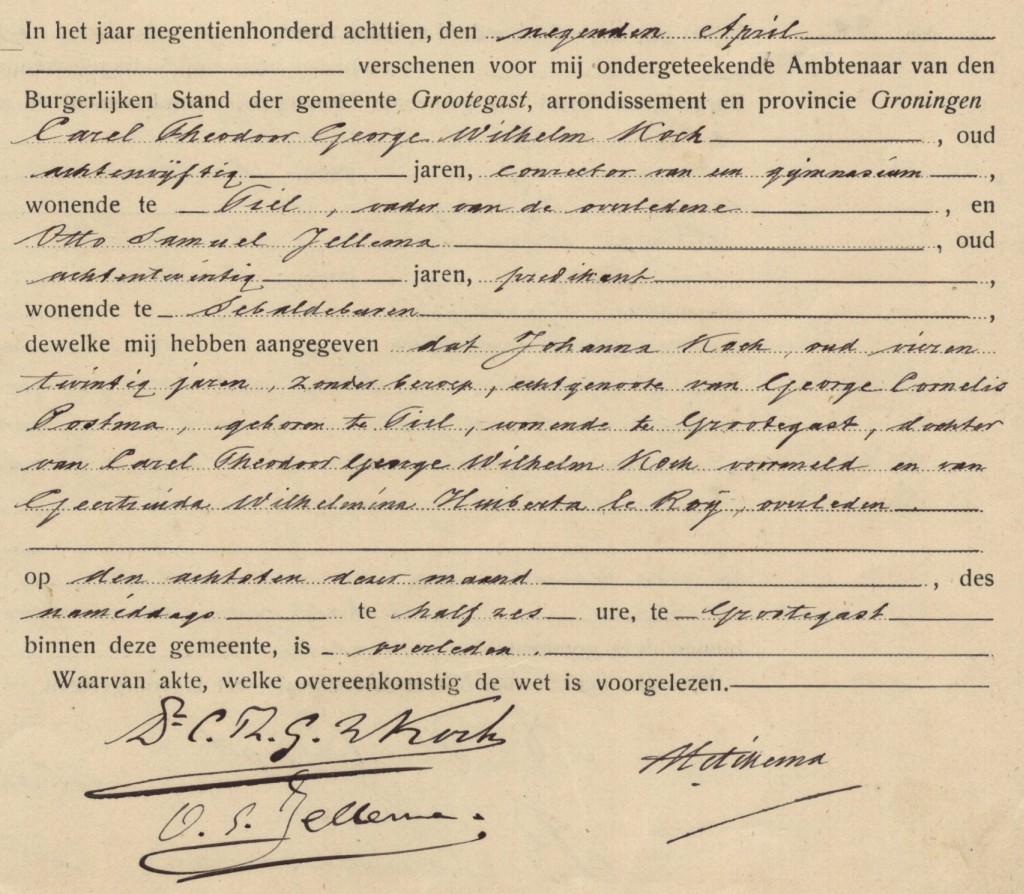 In het jaar negentienhonderd achttien, den negenden April
verschenen voor mij ondergeteekende Ambtenaar van den
Burgerlijken Stand der gemeente Grootegast, arrondissement en provincie Groningen
Carel Theodoor George Wilhelm Koch, oud
achtenvijftig jaren, conrector van een gymnasium,
wonende te Tiel, vader van de overledene, en
Otto Samuel Jellema, oud
achtentwintig jaren, predikant,
wonende te Sebaldeburen,
dewelke mij hebben aangegeven dat Johanna Koch, oud vieren
twintig jaren, zonder beroep, echtgenoote van George Cornelis
Postma, geboren te Tiel, wonende te Grootegast, dochter
van Carel Theodoor George Wilhelm Koch voormeld en van
Geertruida Wilhelmina Huiberta le Roÿ, overleden
op den achtsten dezer maand, des
namiddags te half zes ure, te Grootegast
binnen deze gemeente, is overleden.
Waarvan akte, welke overeenkomstig de wet is voorgelezen.
Dr C. Th. G. W Koch
O. S. Jellema.